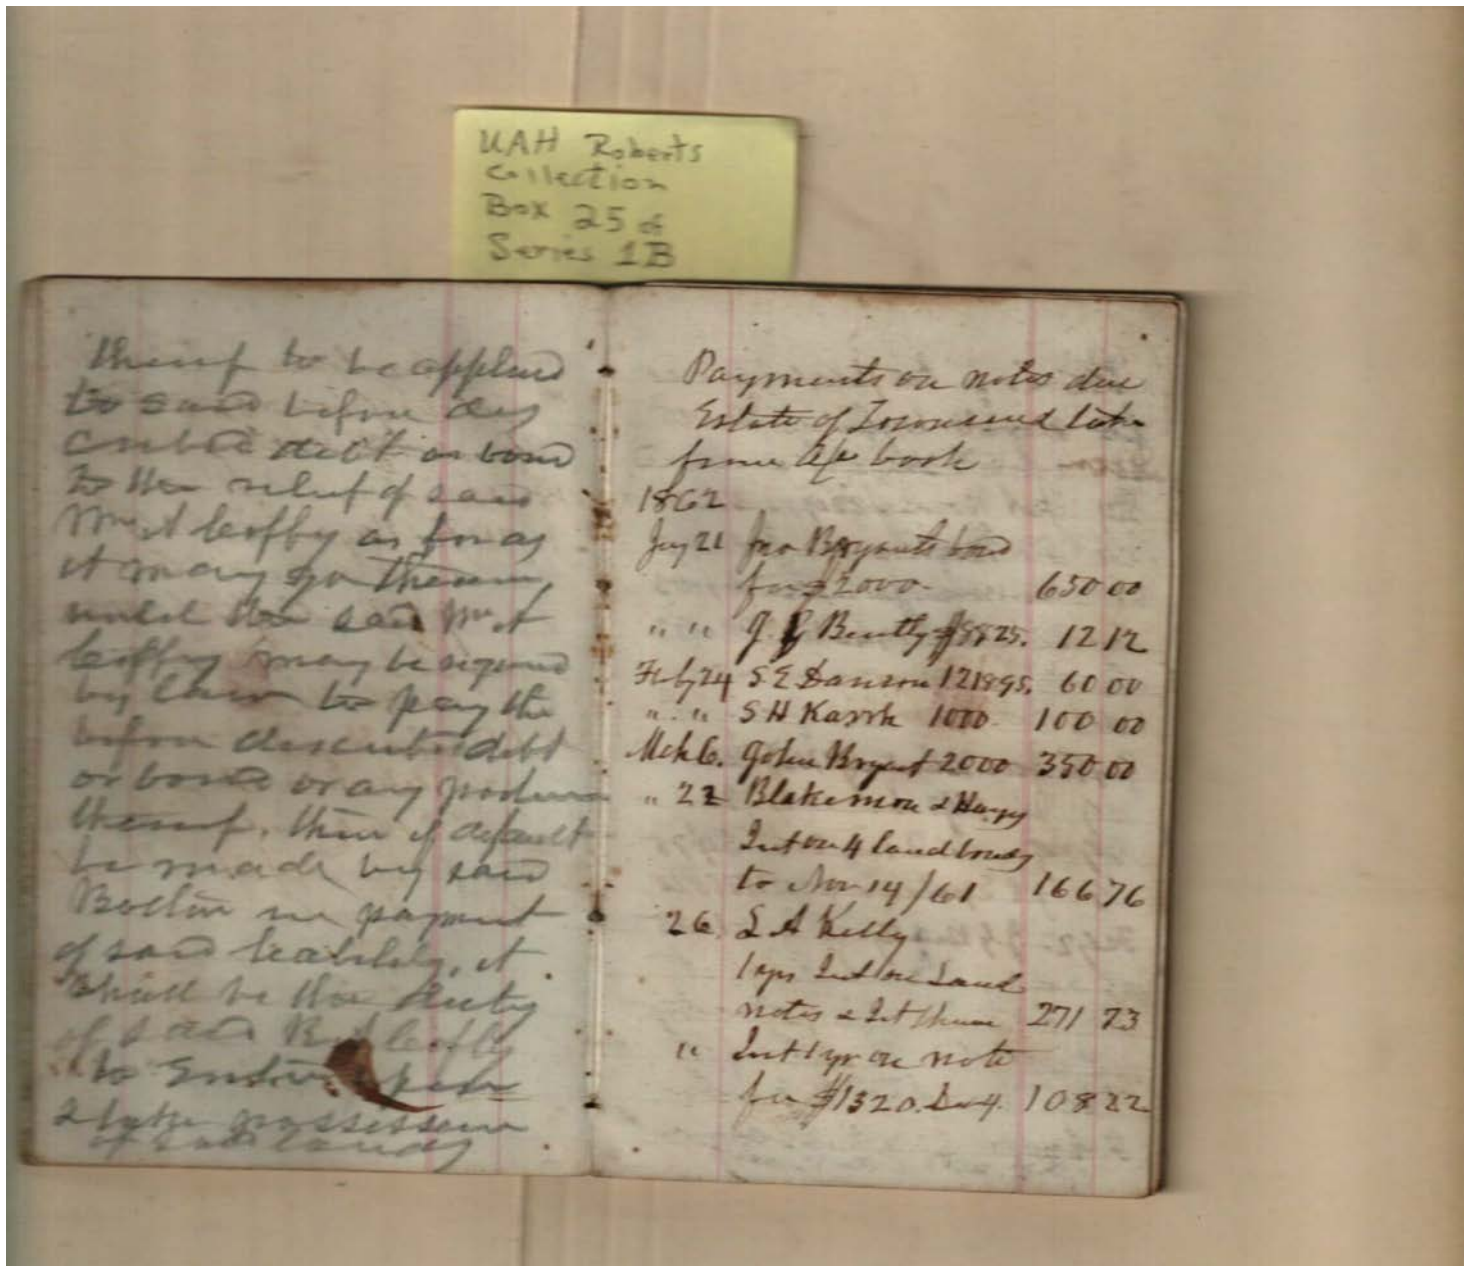 UAH Roberts
Collection
Box 25 of
Series 1B
thereof to be applied
to said before des
cribed debt or bond
to the relief of said
Wm A Coffey as far as
it may go thereon,
until the said Wm A
Coffey may be required
by law to pay the
before described debt
or bond or any portion
thereof, then if default
be made by said
Bolton in payment
of said liability, it
shall be the duty
of said Coffey
to Enter upon
& take possession
of said lands
Payments on notes due
Estate of Townsend
from book
1862
Jay 21 Jno Bryants bond
for $2000. 650 00
" " J. G Bently 12 12
Feby 24 S. E Danson 60 00
" " S H Karsh 1000 100 00
Mch 6. John Bryant 2000 350 00
" 22 Blakemore &
Int on 4 land bonds
to Nov 14/61 166 76
26. S A Kelly
1 yrs Int on Land
notes & Int thereon 271 73
" Int 1 yr on note
for $1320. 108 22